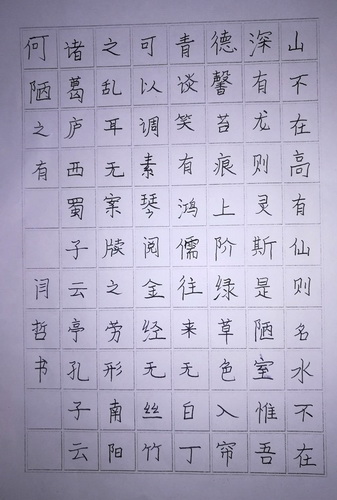 山不在高有仙则名水不在
深有尤则灵斯是陋室惟吾
德馨苔痕上阶绿草色入帘
青谈笑有鸿儒往来无白丁
可以调素琴阅金经无丝竹
之乱耳无案牍之劳形南阳
诸葛庐西蜀子云亭孔子云
何陋之有 闫哲书